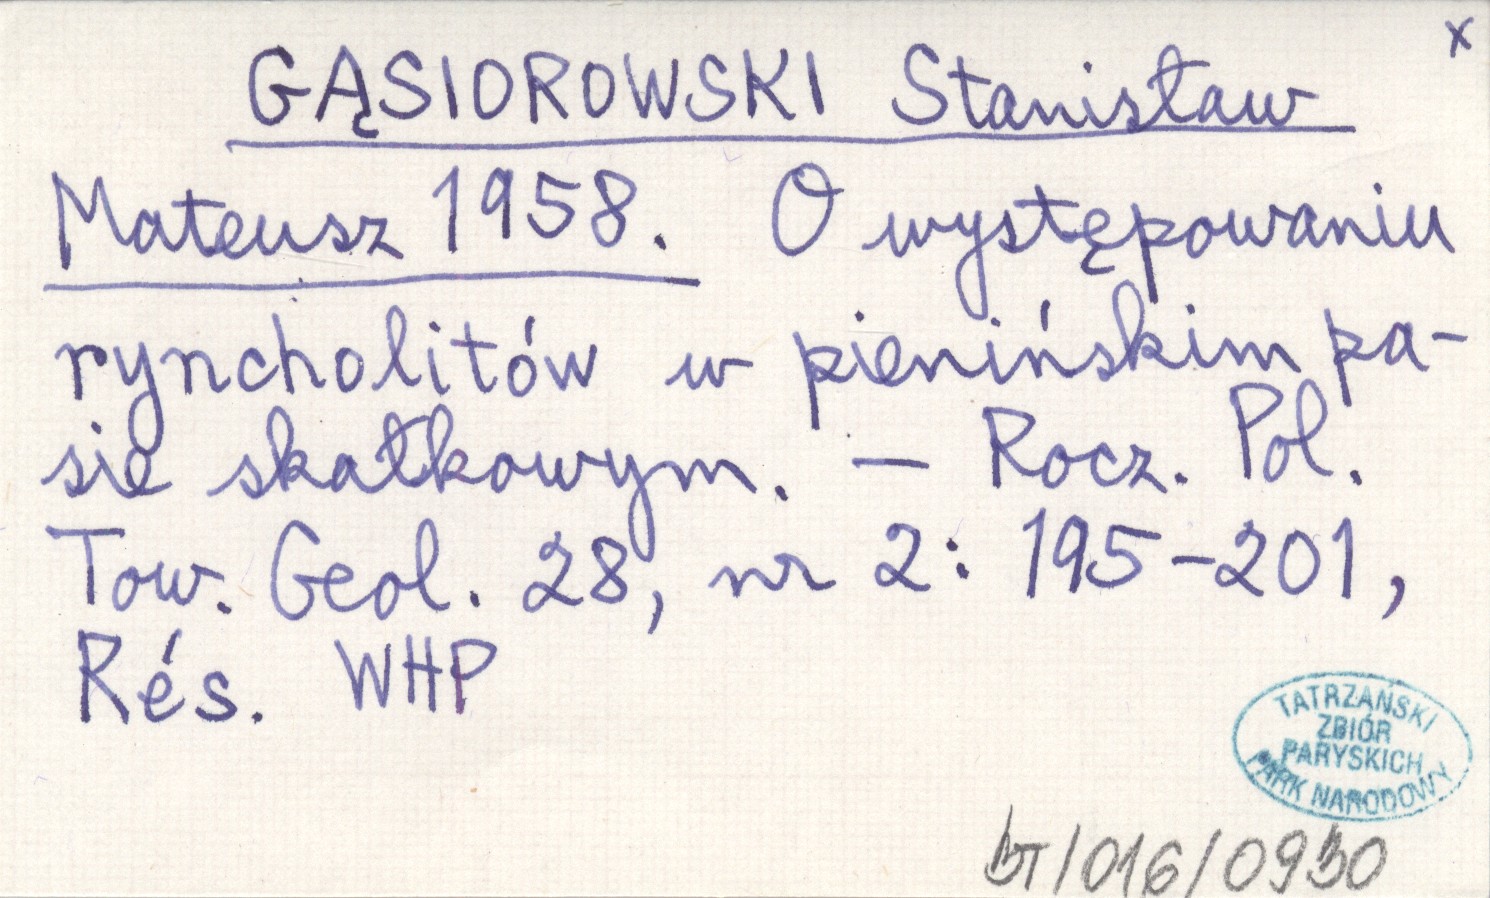 x
GĄSIOROWSKI Stanisław
Mateusz 1958. O występowaniu
ryncholitów w pienińskim pa-
sie skałkowym. – Rocz. Pol.
Tow. Geol. 28, nr 2: 195–201,
Rés. WHP
TATRZAŃSKI
ZBIÓR
PARYSKICH
PARK NARODOWY
/016/0930